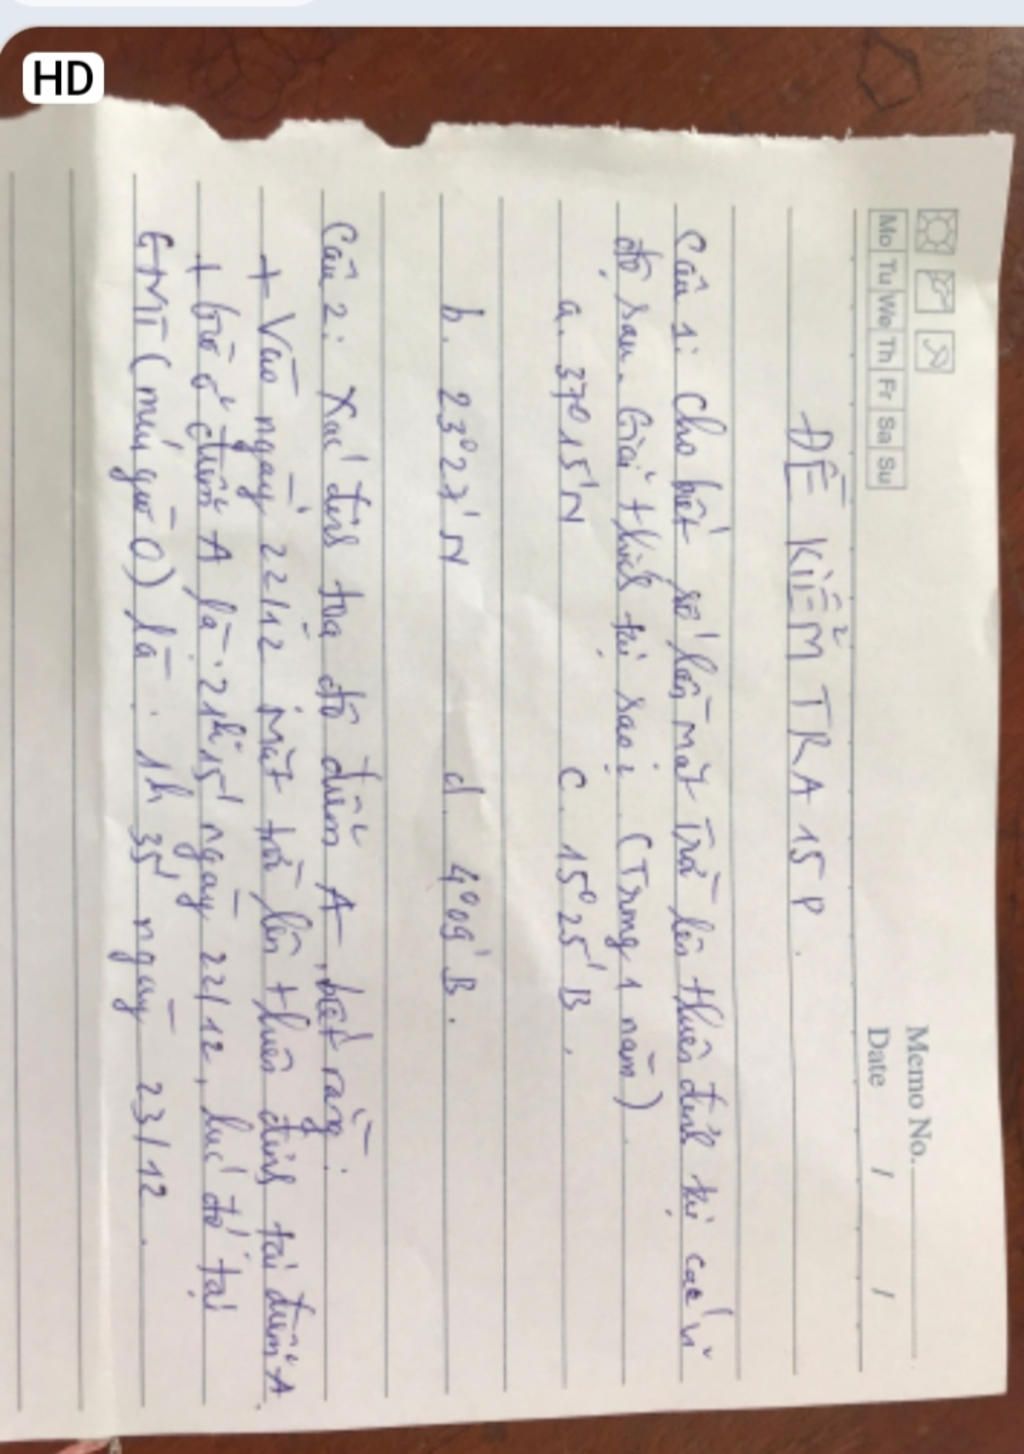 HD
Memo No.
Mo Tu We Th Fr Sa Su
Date / /
ĐỀ KIỂM TRA 15 P.
Câu 1: Cho biết số lần mặt trời lên thiên đỉnh tại các vĩ
độ sau. Giải thích tại sao? (Trong 1 năm)
a. 37°15'N c. 15°25'B.
b. 23°27'N d. 4°09'B.
Câu 2: Xác định toạ độ điểm A, biết rằng:
+ Vào ngày 22/12 Mặt trời lên thiên đỉnh tại điểm A.
+ Giờ ở điểm A là: 21h15' ngày 22/12, lúc đó tại
GMT (múi giờ 0) là: 1h 35' ngày 23/12.